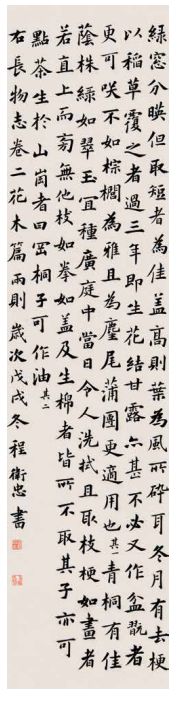 綠窓分暎但取短者為佳蓋高則葉為風所碎耳冬月有去梗
以稻草覆之者過三年即生花結甘露亦甚不必又作盆翫者
更可咲不如棕櫚為雅且為麈尾蒲團更適用也其一青桐有佳
蔭株綠如翠玉宜種廣庭中當日令人洗拭且取枝梗如畫者
若直上而旁無他枝如拳如蓋及生棉者皆所不取其子亦可
點茶生於山崗者曰罡桐子可作油其二
右長物志卷二花木篇兩則歲次戊戌冬程衛忠書